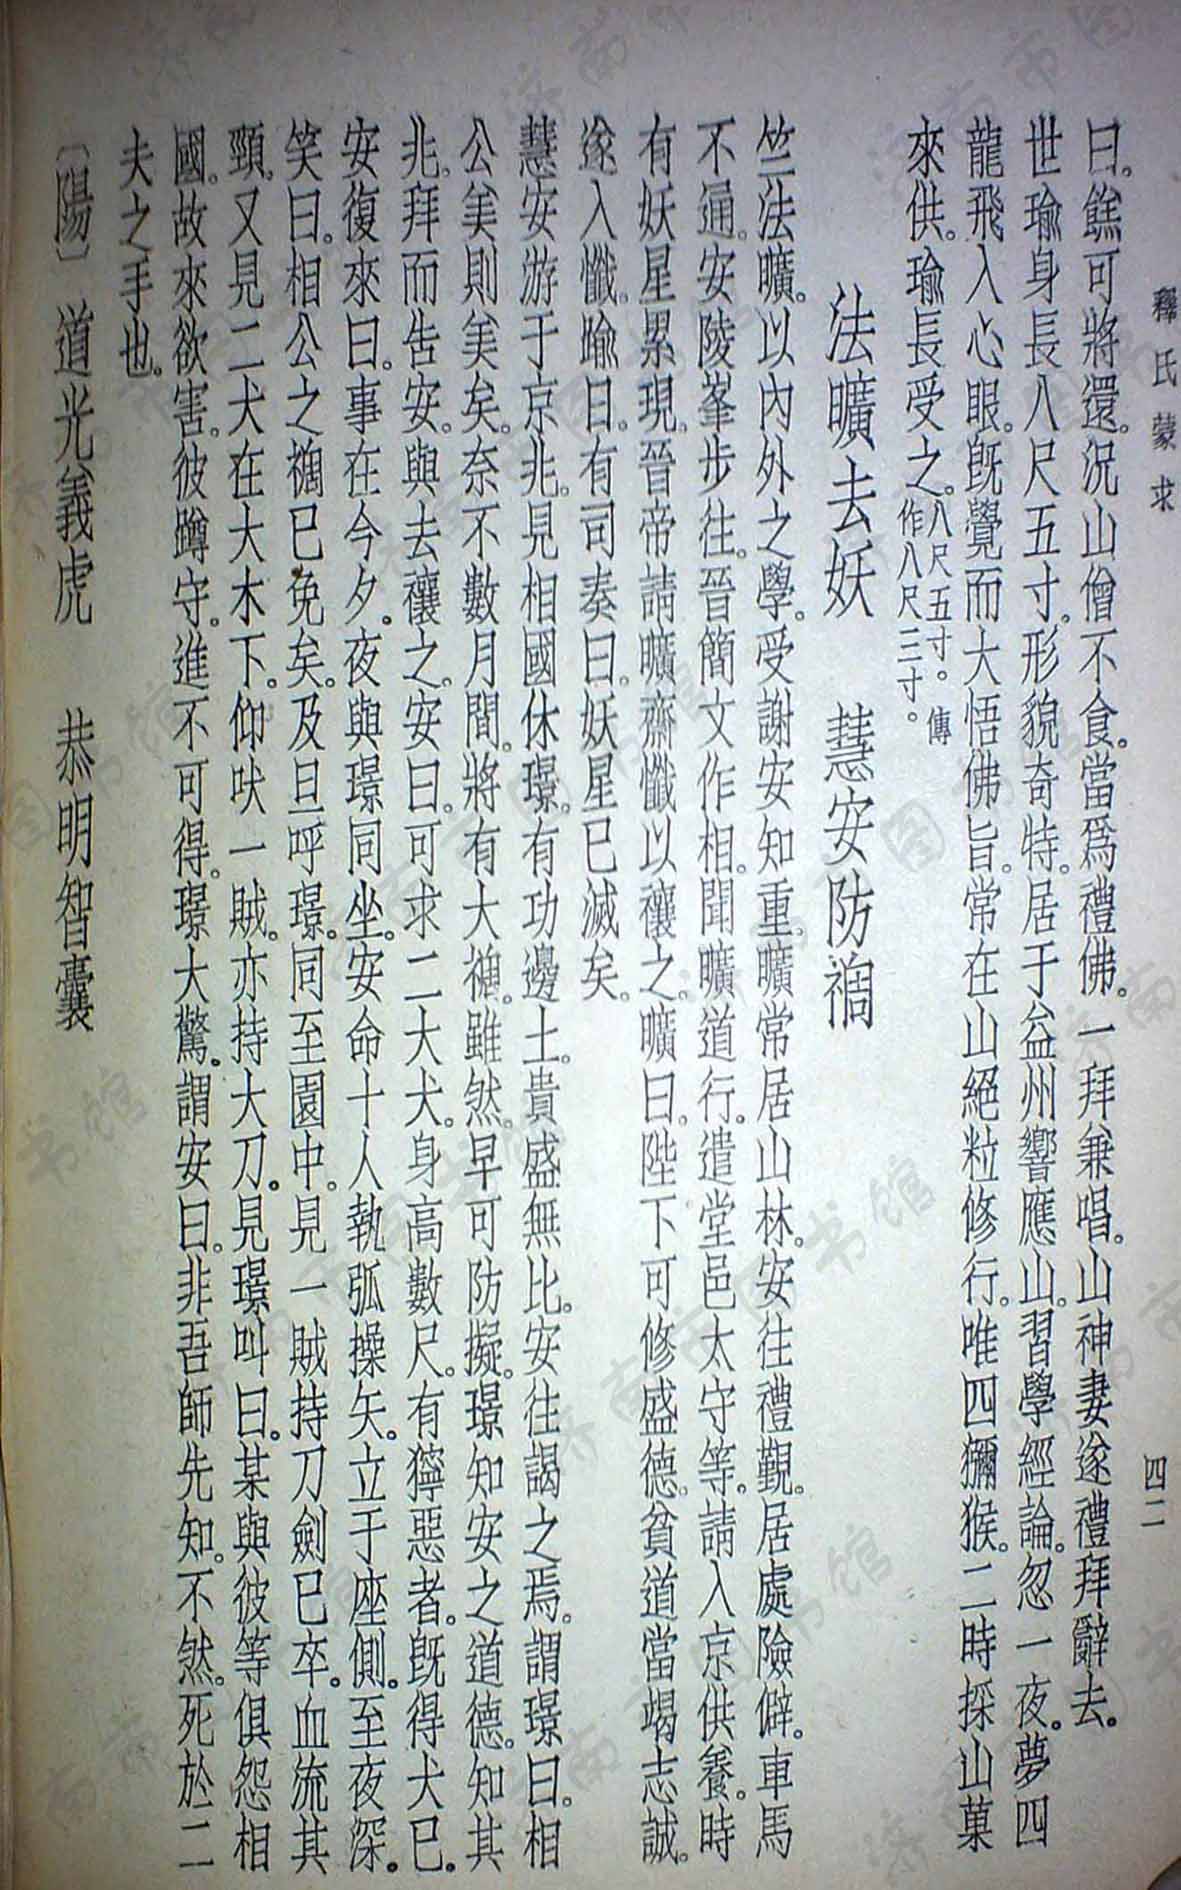 釋氏蒙求
四二
曰。餻可將還。況山僧不食。當爲禮佛。一拜兼唱。山神妻遂禮拜辭去。
世瑜身長八尺五寸。形貌奇特。居于益州響應山。習學經論。忽一夜。夢四
龍飛入心眼。旣覺而大悟佛旨。常在山絕粒修行。唯四獼猴。二時採山菓
來供。瑜長受之。八尺五寸。傳作八尺三寸。
法曠去妖　慧安防禍
竺法曠。以內外之學。受謝安知重。曠常居山林。安往禮觀。居處險僻。車馬
不通。安陵峯步往。晉簡文作相。聞曠道行。遣堂邑太守等。請入京供養。時
有妖星累現。晉帝請曠齋懺以禳之。曠曰。陛下可修盛德。貧道當竭志誠。
遂入懺。踰日。有司奏曰。妖星已滅矣。
慧安游于京兆。見相國休璟。有功邊土。貴盛無比。安往謁之焉。謂璟曰。相
公美則美矣。奈不數月間。將有大禍。雖然。早可防擬。璟知安之道德。知其
兆。拜而告安。與去禳之。安曰。可求二大犬。身高數尺。有獰惡者。旣得犬已。
安復來曰。事在今夕。夜與璟同坐。安命十人執弧操矢。立于座側。至夜深。
笑曰。相公之禍已免矣。及旦呼璟。同至園中。見一賊持刀劍已卒。血流其
頸。又見二犬在大木下。仰吠一賊。亦持大刀。見璟叫曰。某與彼等俱怨相
國。故來欲害。彼蹲守。進不可得。璟大驚。謂安曰。非吾師先知。不然。死於二
夫之手也。
〔陽〕道光義虎　恭明智囊